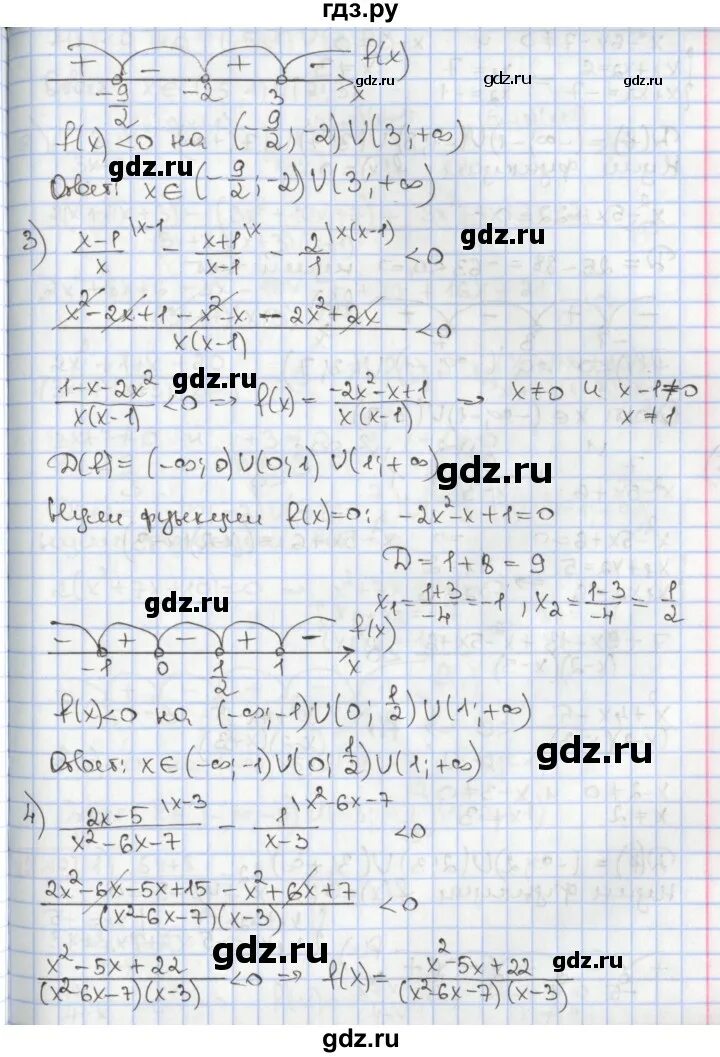 гдз.ру
+ − + − f(x)
-9/2 -2 3 x
gdz.ru gdz.ru gdz.ru
f(x)<0 на (-9/2; -2)∪(3; +∞)
gdz.ru
Ответ: x∈(-9/2; -2)∪(3; +∞)
gdz.ru
3) (x-1)/x \x-1 − (x+1)/(x-1) \x − 2/1 \x(x-1) <0
(x²-2x+1-x²-x-2x²+2x)/(x(x-1)) <0
gdz.ru
(1-x-2x²)/(x(x-1)) <0 → f(x)=(-2x²-x+1)/(x(x-1)) → x≠0 и x-1≠0
x≠1
D(f)=(-∞;0)∪(0;1)∪(1;+∞)
gdz.ru
Нули функции f(x)=0: -2x²-x+1=0
D=1+8=9
gdz.ru
x₁=(1+3)/-4=-1, x₂=(1-3)/-4=1/2
gdz.ru
− + − + − f(x)
-1 0 1/2 1 x
f(x)<0 на (-∞;-1)∪(0;1/2)∪(1;+∞)
gdz.ru
Ответ: x∈(-∞;-1)∪(0;1/2)∪(1;+∞)
4) (2x-5)/(x²-6x-7) \x-3 − 1/(x-3) \x²-6x-7 <0
gdz.ru
(2x²-6x-5x+15-x²+6x+7)/((x²-6x-7)(x-3)) <0
gdz.ru gdz.ru
(x²-5x+22)/((x²-6x-7)(x-3)) <0 → f(x)=(x²-5x+22)/((x²-6x-7)(x-3))
gdz.ru